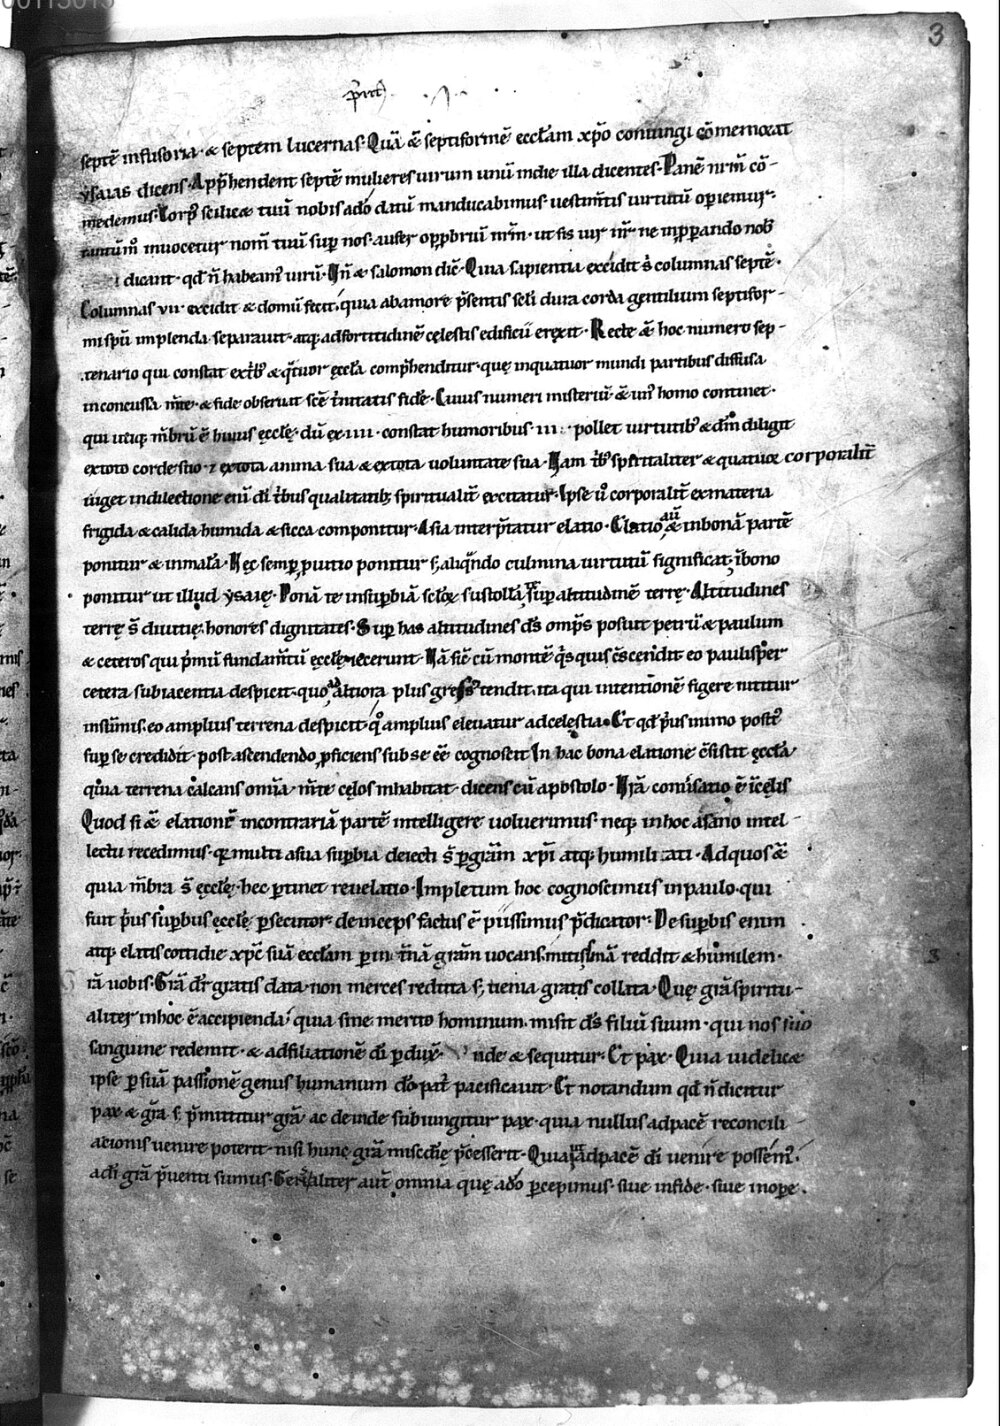 3
septē infusoria · & septem lucernas · Quā & septiformē eccłam xp̄o coniungi cōmemorat
ysaias dicens · App̄hendent septē mulieres uirum unū indie illa dicentes · Panē nr̄m cō-
medemus · Corp' scilicet tuū nobis ado datū manducabimus · uestim̄tis uirtutū operiemur ·
tantūm inuocetur nom̄ tuū sup̱ nos · aufer opp̱briū nr̄m · ut sis uir nr̄ ne
dicant · qd̄ n̄ habeam' uirū · & salomon dic̄ · Quia sapientia excidit s̄ columnas septē ·
Columnas vii · excidit & domū fecit · quia abamore p̄sentis sc̄li dura corda gentilium septifor-
mi sp̄u implenda separauit · atq; adfortitudinē cęlestis edificii erexit · Recte & hoc numero sep-
tenario qui constat extⁱb' & q̄tuor ęccła comp̄henditur · quę inquatuor mundi partibus diffusa
inconcussa m̄te · & fide obseruat sc̄e t̄nitatis fidē · Cuius numeri misteriū & un' homo continet ·
qui utiq; m̄brū ē huius ęccłę · dū ex · iiii · constat humoribus · iii · pollet uirtutib' & dm̄ diligit
extoto corde suo · & extota anima sua & extota uoluntate sua · Nam tⁱb' spiritaliter & quatuor corporalit̄
uiget indilectione enī dī tⁱbus qualitatib; spiritualit̄ excitatur · Ipse ū corporalit̄ exmateria
frigida & calida humida & sicca componitur · Asia interp̄tatur elatio · Elatio aū & inbonā partē
ponitur & inmalā · Nec semp̱ p̱uitio ponitur s; aliqn̄do culmina uirtutū significat; ībono
ponitur ut illud ysaię · Ponā te insup̱biā scłoꝝ sustollā sup̱ altitudinē terrę · Altitudines
terrę s̄ diuitię · honores dignitates · Sup̱ has altitudines dš omp̄s posuit petrū & paulum
& ceteros qui p̄mū fundam̄tū ęccłę iecerunt · Nā sic̄ cū montē q̱s quis c̄scendit eo paulisp̱er
cetera subiacentia despicit · quo altiora plus gressū tendit · ita qui intentionē figere nititur
insūmis · eo amplius terrena despicit · q° amplius eleuatur adcelestia · Et qd̄ p̄us minio poste
sup̱ se credidit · post ascendendo p̱ficiens sub se ēē cognoscit In hac bona elatione c̄sistit ęccła
quia terrena calcans om̄ia · m̄te cęlos inhabitat · dicens cū apostolo · Nr̄a conuersatio ē īcęlis
Quod si & elationē incontrariā partē intelligere uoluerimus · neq; inhoc asano intel-
lectu recedimus · quia multi asua sup̱bia deiecti s̄ p̱ grām xp̄i atq; humiliati · Adquos &
quia m̄bra s̄ ęccłę · hec p̱tinet reuelatio · Impletum hoc cognoscimus inpaulo · qui
fuit p̄us sup̱bus ęccłę p̱secutor · deinceps factus ē piissimus p̄dicator · De sup̱bis enim
atq; elatis cottidie xp̄c suā eccłam p̱ int̄nā grām uocans · mitissimā reddit & humilem ·
ɪā uobis · Grā dr̄ gratis data · non merces reddita s; uenia gratis collata · Quę grā spiritu-
aliter inhoc ē accipienda · quia sine merito hominum · misit dš filiū suum · qui nos suo
sanguine redemit · & adfiliationē dī p̱dux̄ · Unde & sequitur · Et pax · Quia uidelicet
ipse p̱ suā passionē genus humanum dō pat̄ pacificauit · Et notandum qd̄ n̄ dicitur
pax & grā s; p̄mittitur grā ac deinde subiungitur pax · quia nullus adpacē reconcili
ationis uenire poterit · nisi hunc grā miscd̄ię p̄cesserit · Quia ut adpacē dī uenire possem' ·
adī grā p̄uenti sumus · Gen̄aliter aut̄ omnia quę ado p̱cepimus · siue infide · siue inoꝑe ·